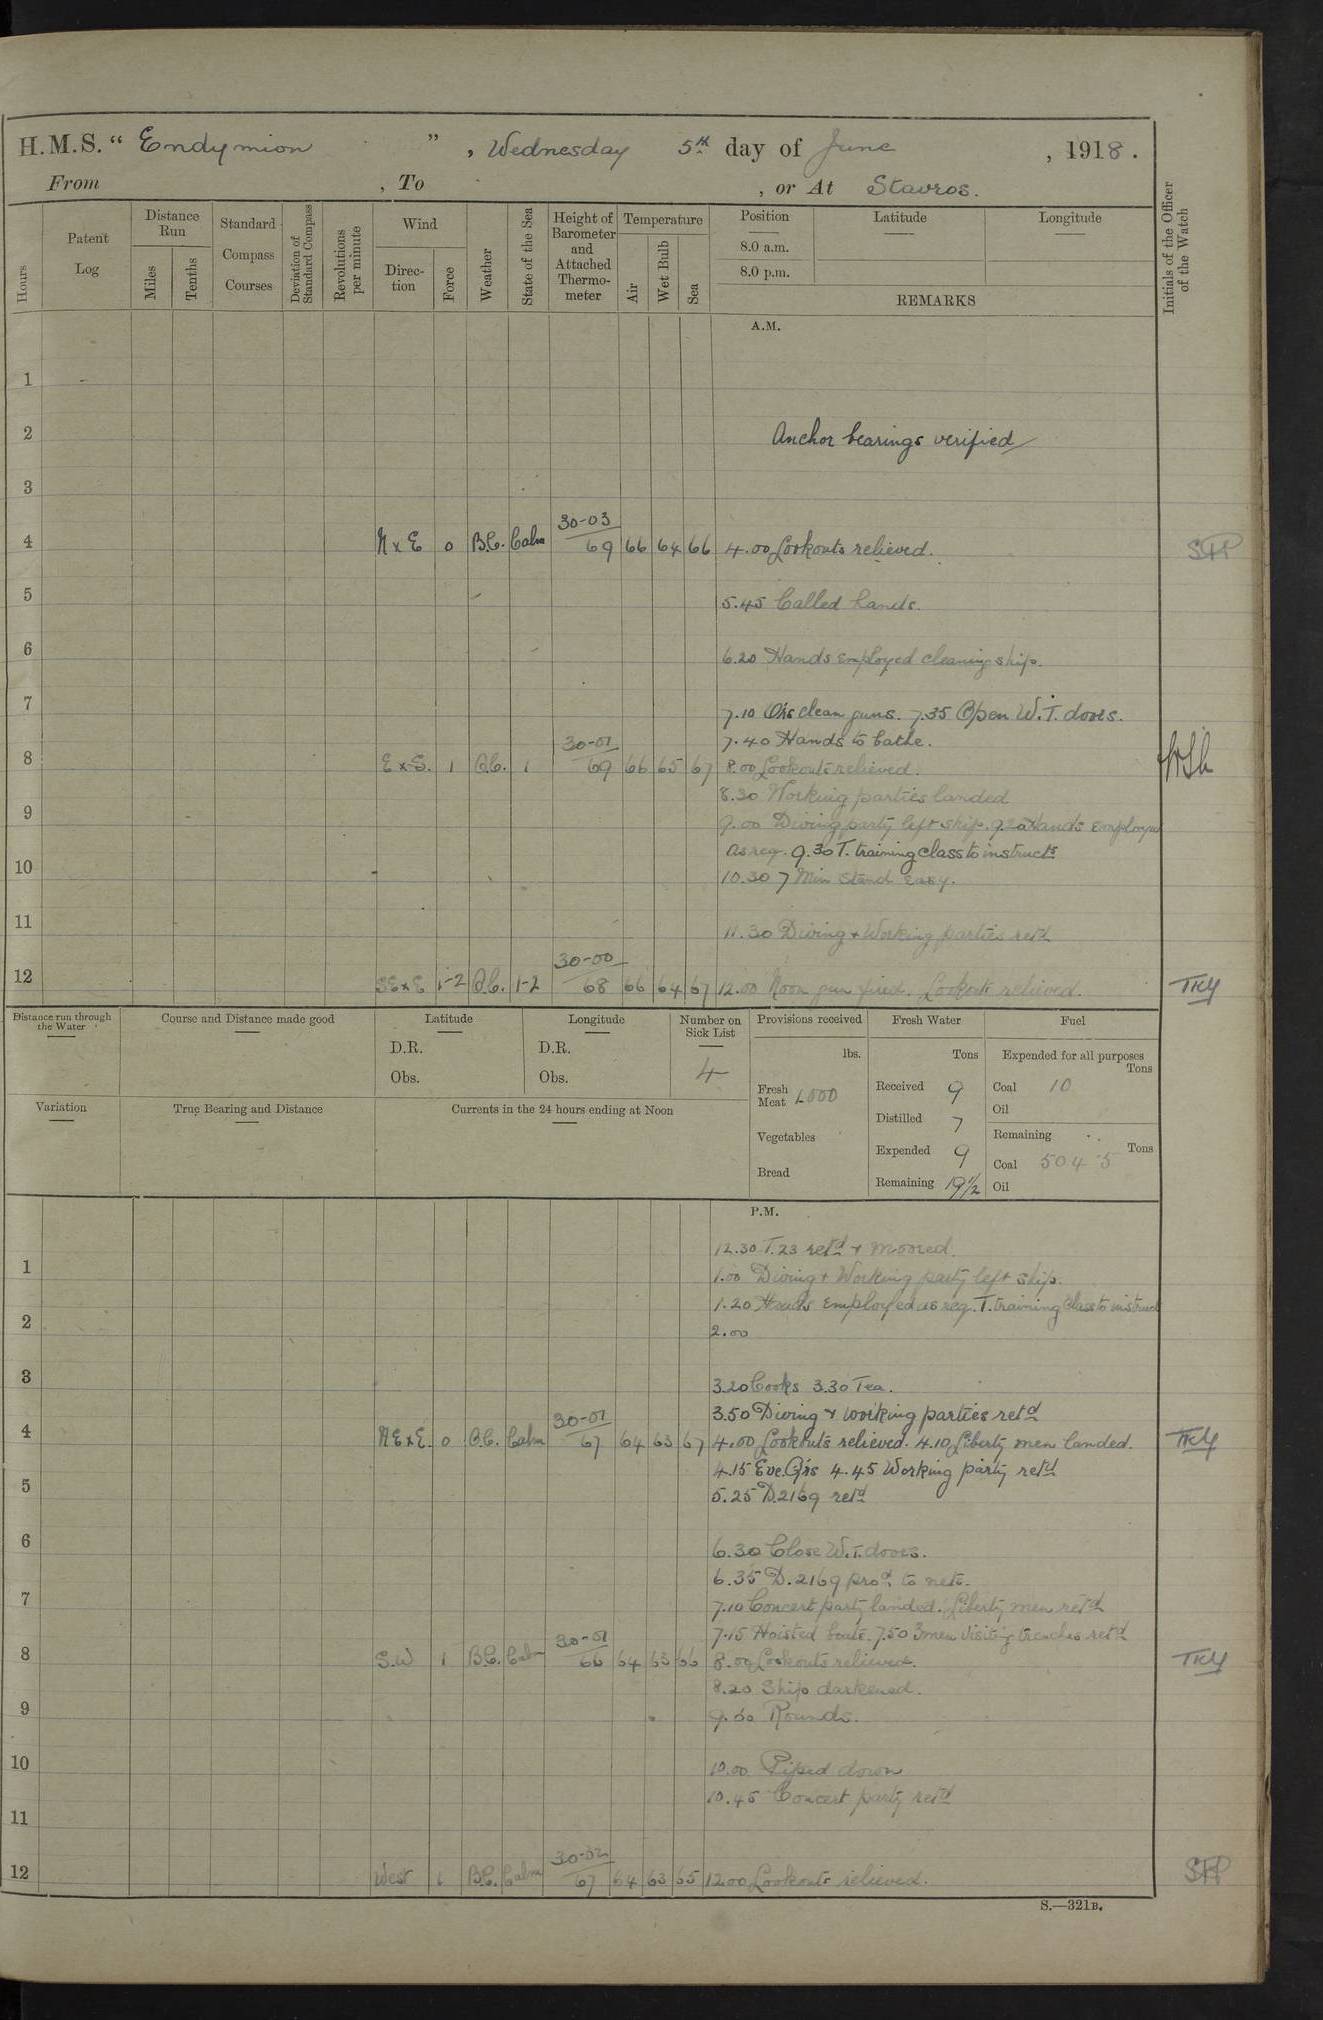 H.M.S. “ Endymion ” , Wednesday 5th day of June , 1918 .
From , To , or At Stavros.
Hours
Patent Log
Distance Run
Miles
Tenths
Standard Compass Courses
Deviation of Standard Compass
Revolutions per minute
Wind
Direction
Force
Weather
State of the Sea
Height of Barometer and Attached Thermometer
Temperature
Air
Wet Bulb
Sea
Position
8.0 a.m.
8.0 p.m.
Latitude
Longitude
REMARKS
Initials of the Officer of the Watch
A.M.
1
2 Anchor bearings verified
3
30-03
4 N x E 0 B.C. Calm 69 66 64 66 4.00 Lookouts relieved.
5 5.45 Called hands.
6 6.20 Hands employed cleaning ship.
7 7.10 Qrs clean guns. 7.35 Open W.T. doors.
30-01 7.40 Hands to bathe.
8 E x S. 1 B.C. 1 69 66 65 67 8.00 Lookouts relieved.
8.30 Working parties landed
9 9.00 Diving party left ship. 9.20 Hands employed
as req. 9.30 T. training class to instructn
10 10.30 7 Min Stand easy.
11 11.30 Diving + Working parties retd
30-00
12 SE x E 1-2 B.C. 1-2 68 66 64 67 12.00 Noon gun fired. Lookouts relieved. TKY
Distance run through the Water
Course and Distance made good
Latitude
D.R.
Obs.
Longitude
D.R.
Obs.
Number on Sick List
4
Variation
True Bearing and Distance
Currents in the 24 hours ending at Noon
Provisions received
lbs.
Fresh Meat 1000
Vegetables
Bread
Fresh Water
Tons
Received 9
Distilled 7
Expended 9
Remaining 19½
Fuel
Expended for all purposes
Tons
Coal 10
Oil
Remaining
Tons
Coal 504·5
Oil
P.M.
12.30 T.23 retd + moored.
1 1.00 Diving + Working party left ship.
1.20 Hands employed as req. T. training Class to instruct
2 2.00
3 3.20 Cooks 3.30 Tea.
30-01 3.50 Diving + working parties retd
4 NE x E. 0 B.C. Calm 67 64 63 67 4.00 Lookouts relieved. 4.10 Liberty men landed. TKY
4.15 Eve. Qrs 4.45 Working party retd
5 5.25 D.2169 retd
6 6.30 Close W.T. doors.
6.35 D.2169 procd to nets.
7 7.10 Concert party landed. Liberty men retd
30-01 7.15 Hoisted boats. 7.50 3 men visiting trenches retd
8 S.W 1 B.C. Calm 66 64 63 66 8.00 Lookouts relieved. TKY
8.20 Ship darkened.
9 9.00 Rounds.
10 10.00 Piped down
10.45 Concert party retd
11
30-02
12 West 1 B.C. Calm 67 64 63 65 12.00 Lookouts relieved.
S.—321B.